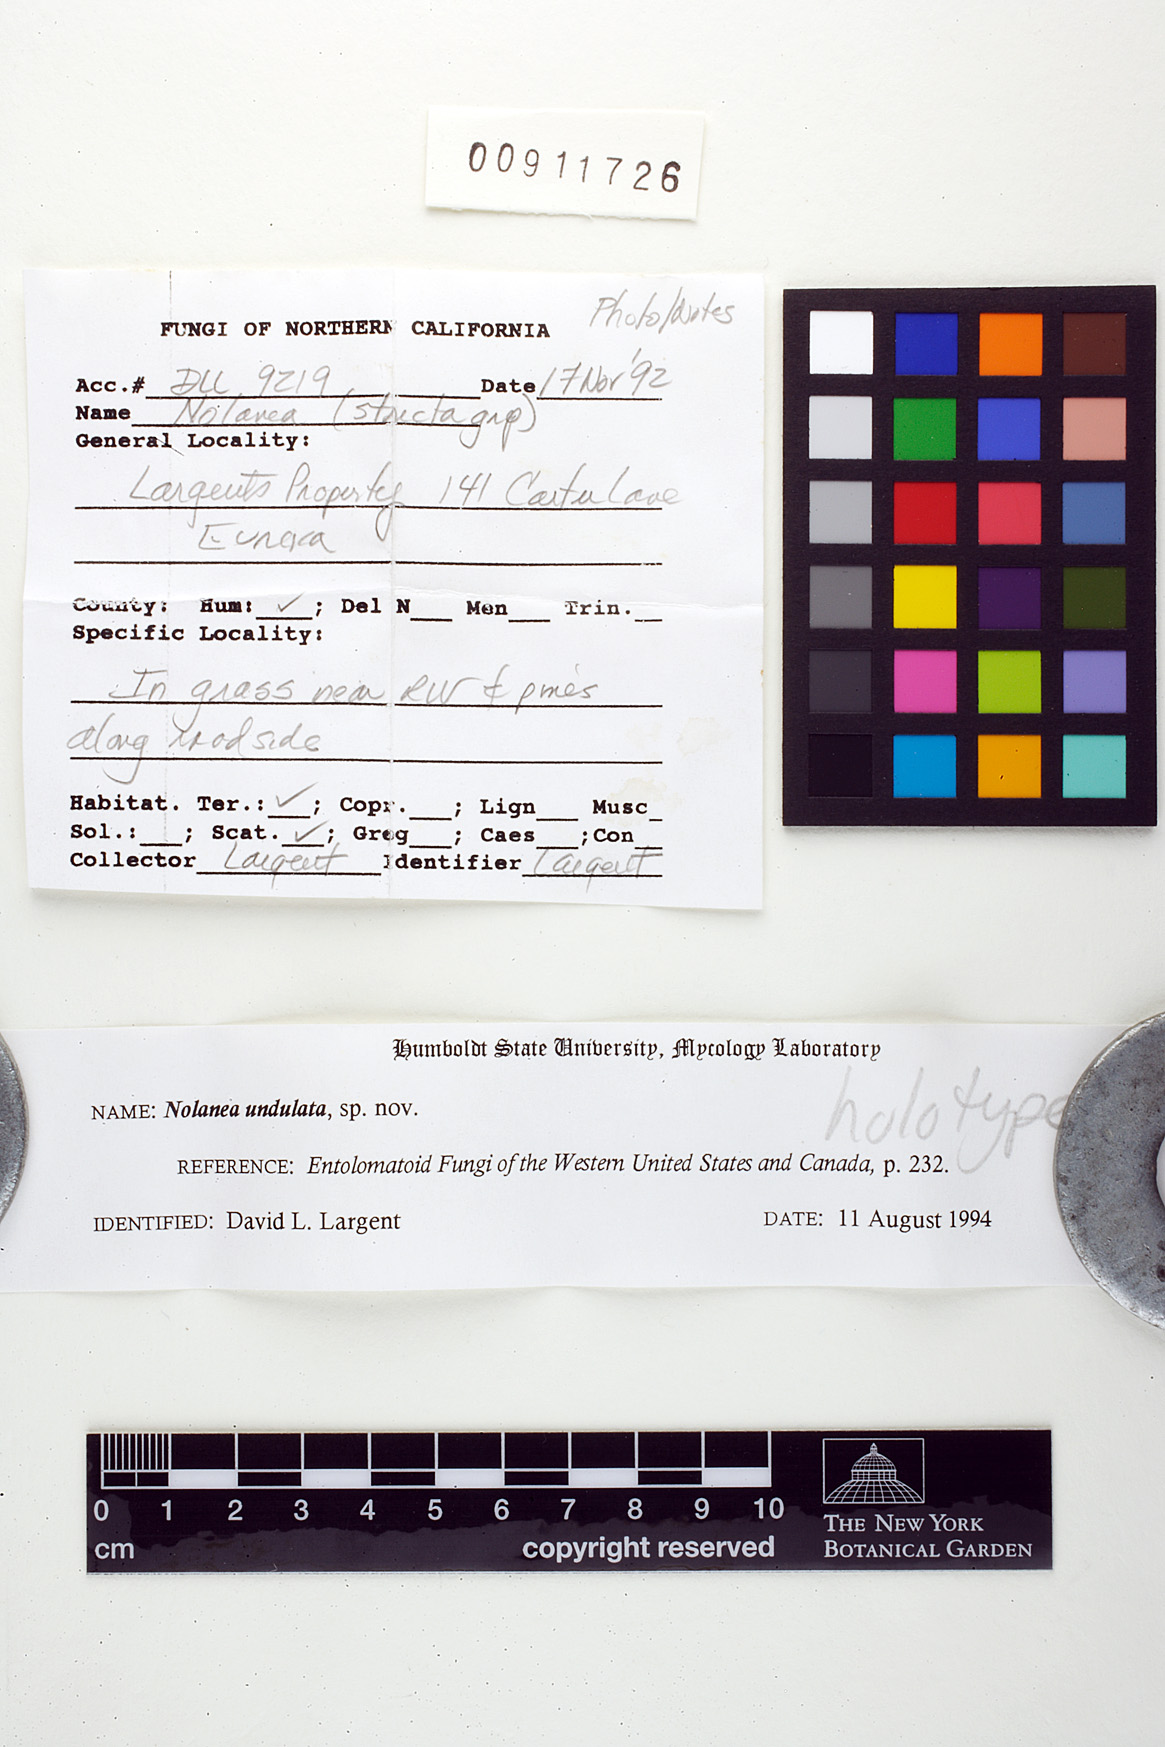 00911726
Photo/Notes
FUNGI OF NORTHERN CALIFORNIA
Acc.# DLL 9219 Date 17 Nov '92
Name Nolanea (stricta grp)
General Locality:
Largents Property 141 Carter Lane
Eureka
County: Hum: ✓; Del N___ Men___ Trin.__
Specific Locality:
In grass near RW & pines
along roadside
Habitat. Ter.: ✓; Copr.___; Lign___ Musc_
Sol.:___; Scat. ✓; Greg___; Caes___;Con__
Collector Largent Identifier Largent
Humboldt State University, Mycology Laboratory
holotype
NAME: Nolanea undulata, sp. nov.
REFERENCE: Entolomatoid Fungi of the Western United States and Canada, p. 232.
IDENTIFIED: David L. Largent DATE: 11 August 1994
0 1 2 3 4 5 6 7 8 9 10
cm copyright reserved
THE NEW YORK
BOTANICAL GARDEN